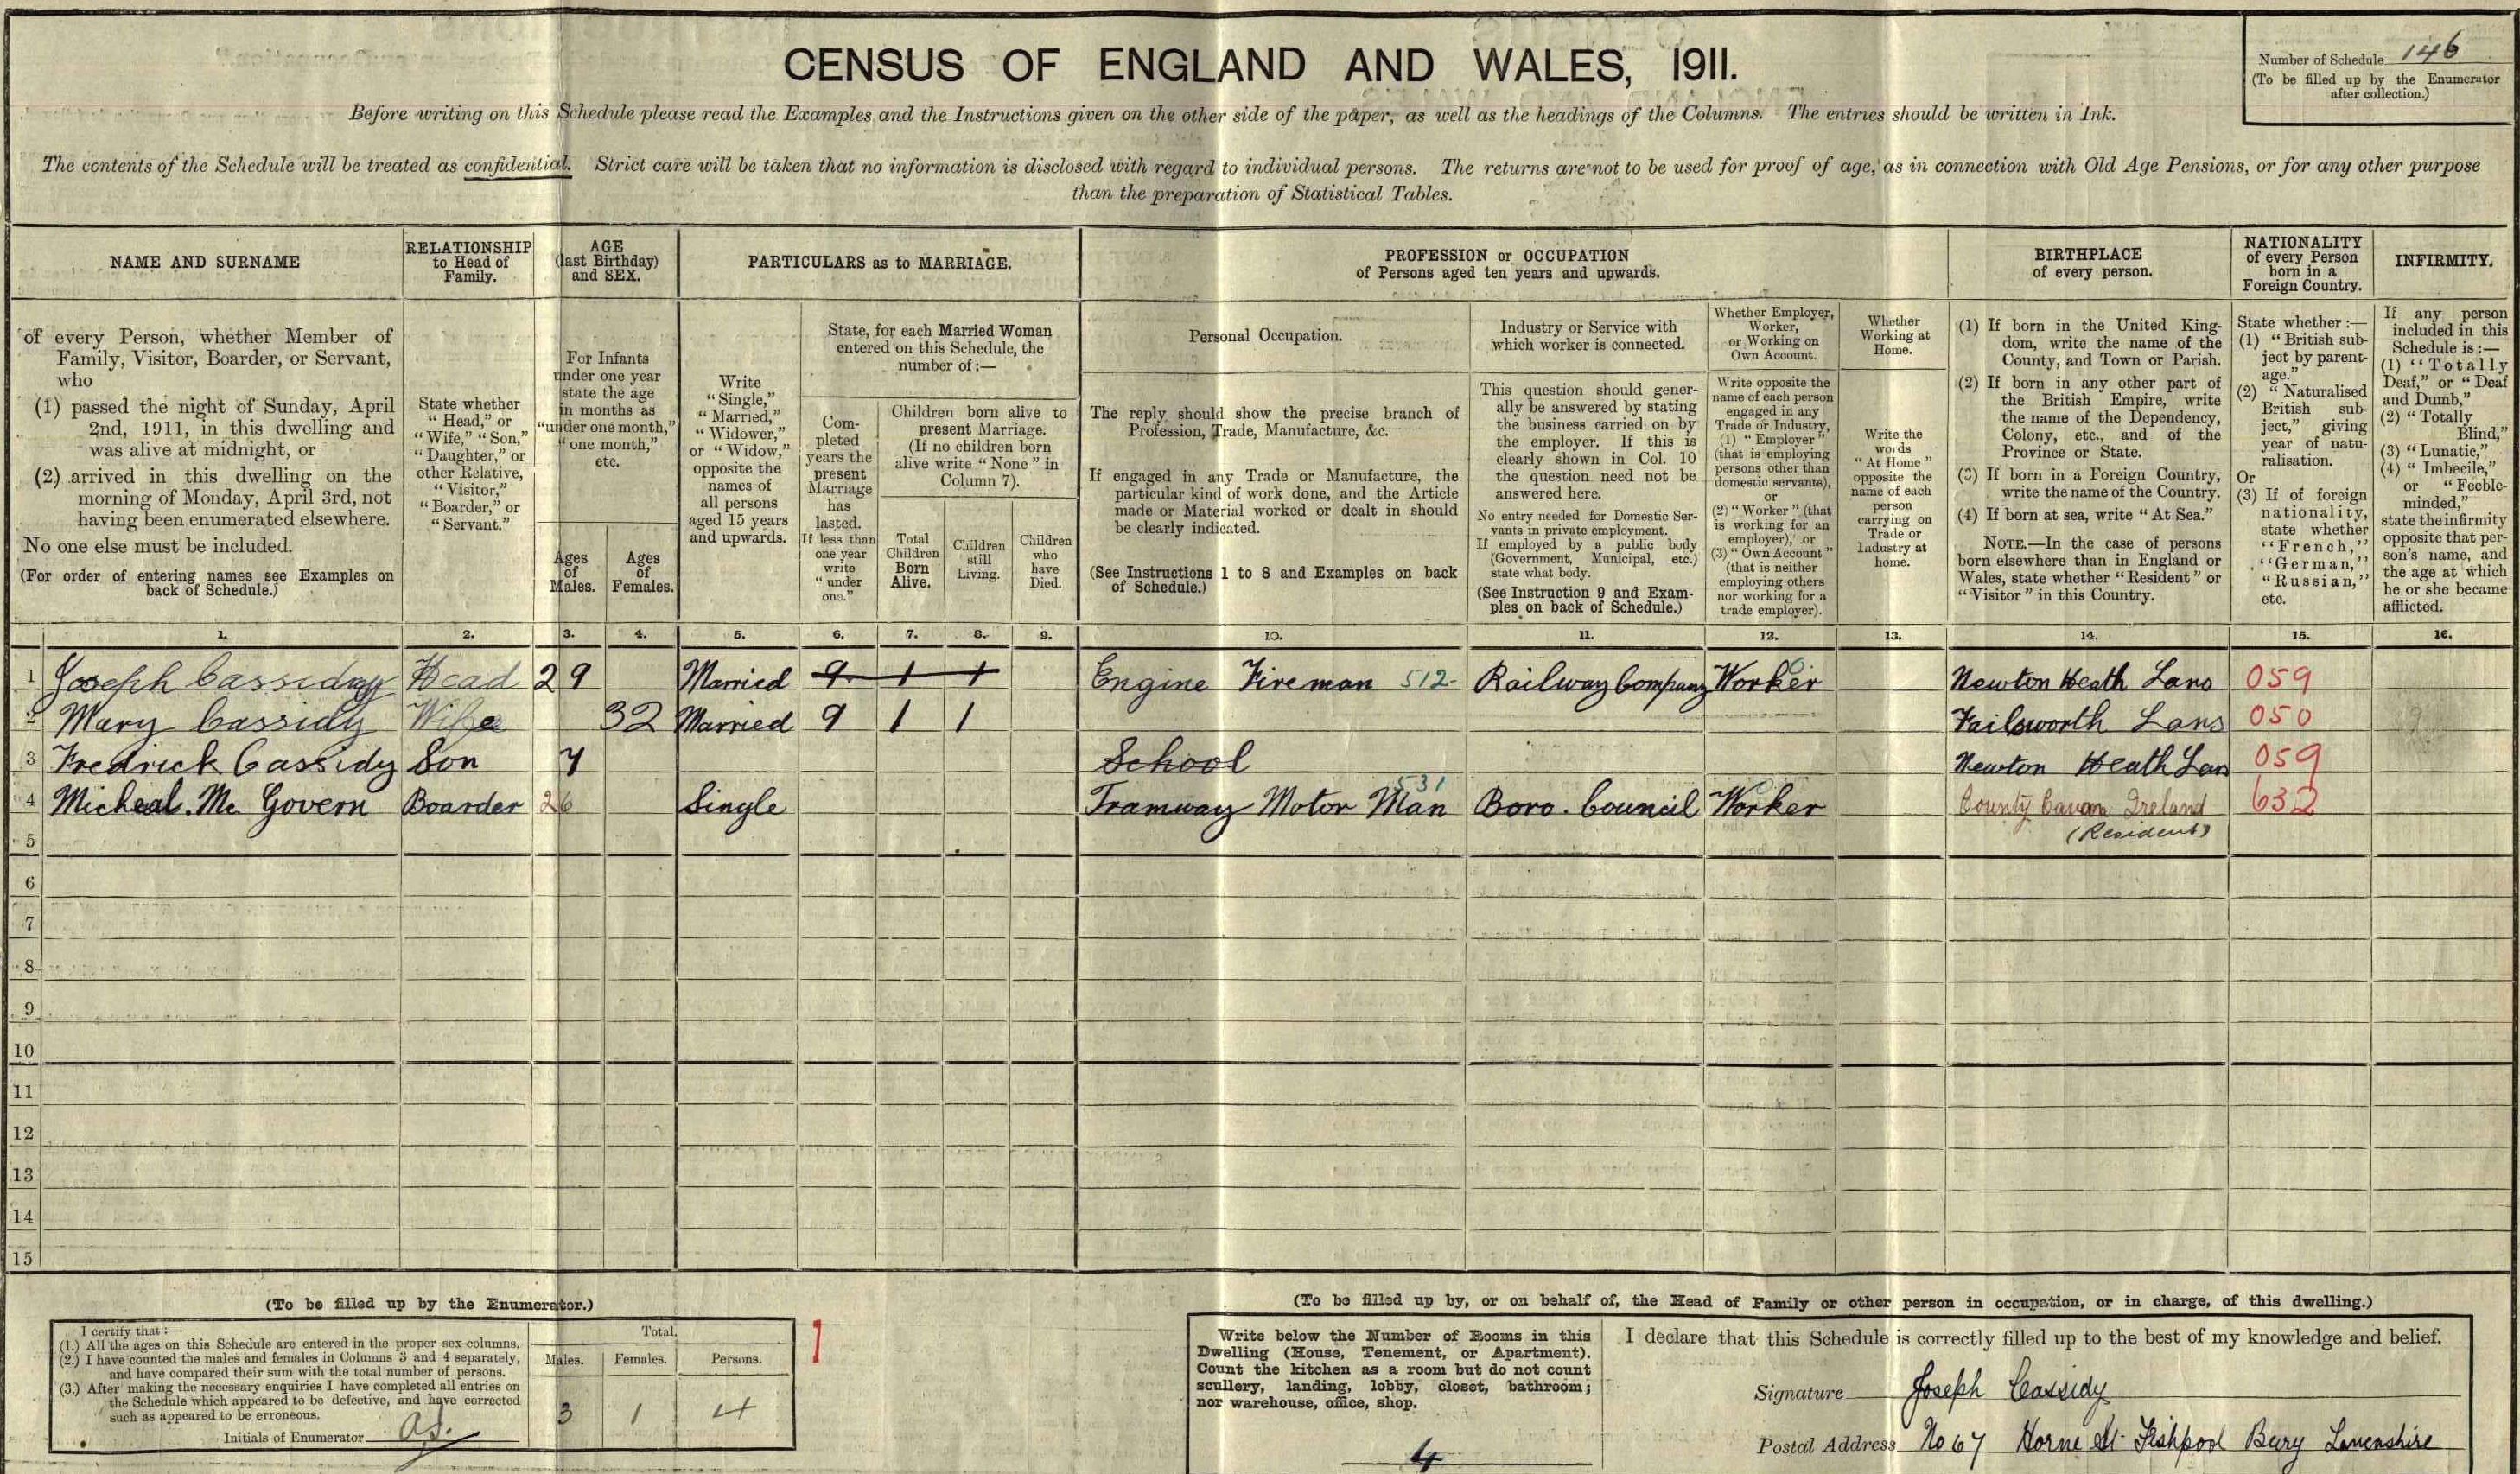 CENSUS OF ENGLAND AND WALES, 1911.
Number of Schedule 146
(To be filled up by the Enumerator
after collection.)
Before writing on this Schedule please read the Examples and the Instructions given on the other side of the paper, as well as the headings of the Columns. The entries should be written in Ink.
The contents of the Schedule will be treated as confidential. Strict care will be taken that no information is disclosed with regard to individual persons. The returns are not to be used for proof of age, as in connection with Old Age Pensions, or for any other purpose
than the preparation of Statistical Tables.
NAME AND SURNAME
RELATIONSHIP
to Head of
Family.
AGE
(last Birthday)
and SEX.
PARTICULARS as to MARRIAGE.
PROFESSION or OCCUPATION
of Persons aged ten years and upwards.
BIRTHPLACE
of every person.
NATIONALITY
of every Person
born in a
Foreign Country.
INFIRMITY.
of every Person, whether Member of
Family, Visitor, Boarder, or Servant,
who
(1) passed the night of Sunday, April
2nd, 1911, in this dwelling and
was alive at midnight, or
(2) arrived in this dwelling on the
morning of Monday, April 3rd, not
having been enumerated elsewhere.
No one else must be included.
(For order of entering names see Examples on
back of Schedule.)
State whether
"Head," or
"Wife," "Son,"
"Daughter," or
other Relative,
"Visitor,"
"Boarder," or
"Servant."
For Infants
under one year
state the age
in months as
"under one month,"
"one month,"
etc.
Ages
of
Males.
Ages
of
Females.
Write
"Single,"
"Married,"
"Widower,"
or "Widow,"
opposite the
names of
all persons
aged 15 years
and upwards.
State, for each Married Woman
entered on this Schedule, the
number of:—
Com-
pleted
years the
present
Marriage
has
lasted.
If less than
one year
write
"under
one."
Children born alive to
present Marriage.
(If no children born
alive write "None" in
Column 7).
Total
Children
Born
Alive.
Children
still
Living.
Children
who
have
Died.
Personal Occupation.
The reply should show the precise branch of
Profession, Trade, Manufacture, &c.
If engaged in any Trade or Manufacture, the
particular kind of work done, and the Article
made or Material worked or dealt in should
be clearly indicated.
(See Instructions 1 to 8 and Examples on back
of Schedule.)
Industry or Service with
which worker is connected.
This question should gener-
ally be answered by stating
the business carried on by
the employer. If this is
clearly shown in Col. 10
the question need not be
answered here.
No entry needed for Domestic Ser-
vants in private employment.
If employed by a public body
(Government, Municipal, etc.)
state what body.
(See Instruction 9 and Exam-
ples on back of Schedule.)
Whether Employer,
Worker,
or Working on
Own Account.
Write opposite the
name of each person
engaged in any
Trade or Industry,
(1) "Employer"
(that is employing
persons other than
domestic servants),
or
(2) "Worker" (that
is working for an
employer), or
(3) "Own Account"
(that is neither
employing others
nor working for a
trade employer).
Whether
Working at
Home.
Write the
words
"At Home"
opposite the
name of each
person
carrying on
Trade or
Industry at
home.
(1) If born in the United King-
dom, write the name of the
County, and Town or Parish.
(2) If born in any other part of
the British Empire, write
the name of the Dependency,
Colony, etc., and of the
Province or State.
(3) If born in a Foreign Country,
write the name of the Country.
(4) If born at sea, write "At Sea."
NOTE.—In the case of persons
born elsewhere than in England or
Wales, state whether "Resident" or
"Visitor" in this Country.
State whether:—
(1) "British sub-
ject by parent-
age."
(2) "Naturalised
British sub-
ject," giving
year of natu-
ralisation.
Or
(3) If of foreign
nationality,
state whether
"French,"
"German,"
"Russian,"
etc.
If any person
included in this
Schedule is:—
(1) "Totally
Deaf," or "Deaf
and Dumb,"
(2) "Totally
Blind,"
(3) "Lunatic,"
(4) "Imbecile,"
or "Feeble-
minded,"
state the infirmity
opposite that per-
son's name, and
the age at which
he or she became
afflicted.
1. 2. 3. 4. 5. 6. 7. 8. 9. 10. 11. 12. 13. 14. 15. 16.
1 Joseph Cassidy Head 29 Married 9 1 1 Engine Fireman 512 Railway Company Worker Newton Heath Lans 059
2 Mary Cassidy Wife 32 Married 9 1 1 Failsworth Lans 050
3 Fredrick Cassidy Son 7 School Newton Heath Lan 059
4 Micheal. Mc Govern Boarder 26 Single Tramway Motor Man 531 Boro. Council Worker County Cavan Ireland 632
(Resident)
5
6
7
8
9
10
11
12
13
14
15
(To be filled up by the Enumerator.)
I certify that:—
(1.) All the ages on this Schedule are entered in the proper sex columns.
(2.) I have counted the males and females in Columns 3 and 4 separately,
and have compared their sum with the total number of persons.
(3.) After making the necessary enquiries I have completed all entries on
the Schedule which appeared to be defective, and have corrected
such as appeared to be erroneous.
Initials of Enumerator
Total.
Males. Females. Persons.
3 1 4
1
(To be filled up by, or on behalf of, the Head of Family or other person in occupation, or in charge, of this dwelling.)
Write below the Number of Rooms in this
Dwelling (House, Tenement, or Apartment).
Count the kitchen as a room but do not count
scullery, landing, lobby, closet, bathroom;
nor warehouse, office, shop.
4
I declare that this Schedule is correctly filled up to the best of my knowledge and belief.
Signature Joseph Cassidy
Postal Address No 67 Horne St Fishpool Bury Lancashire